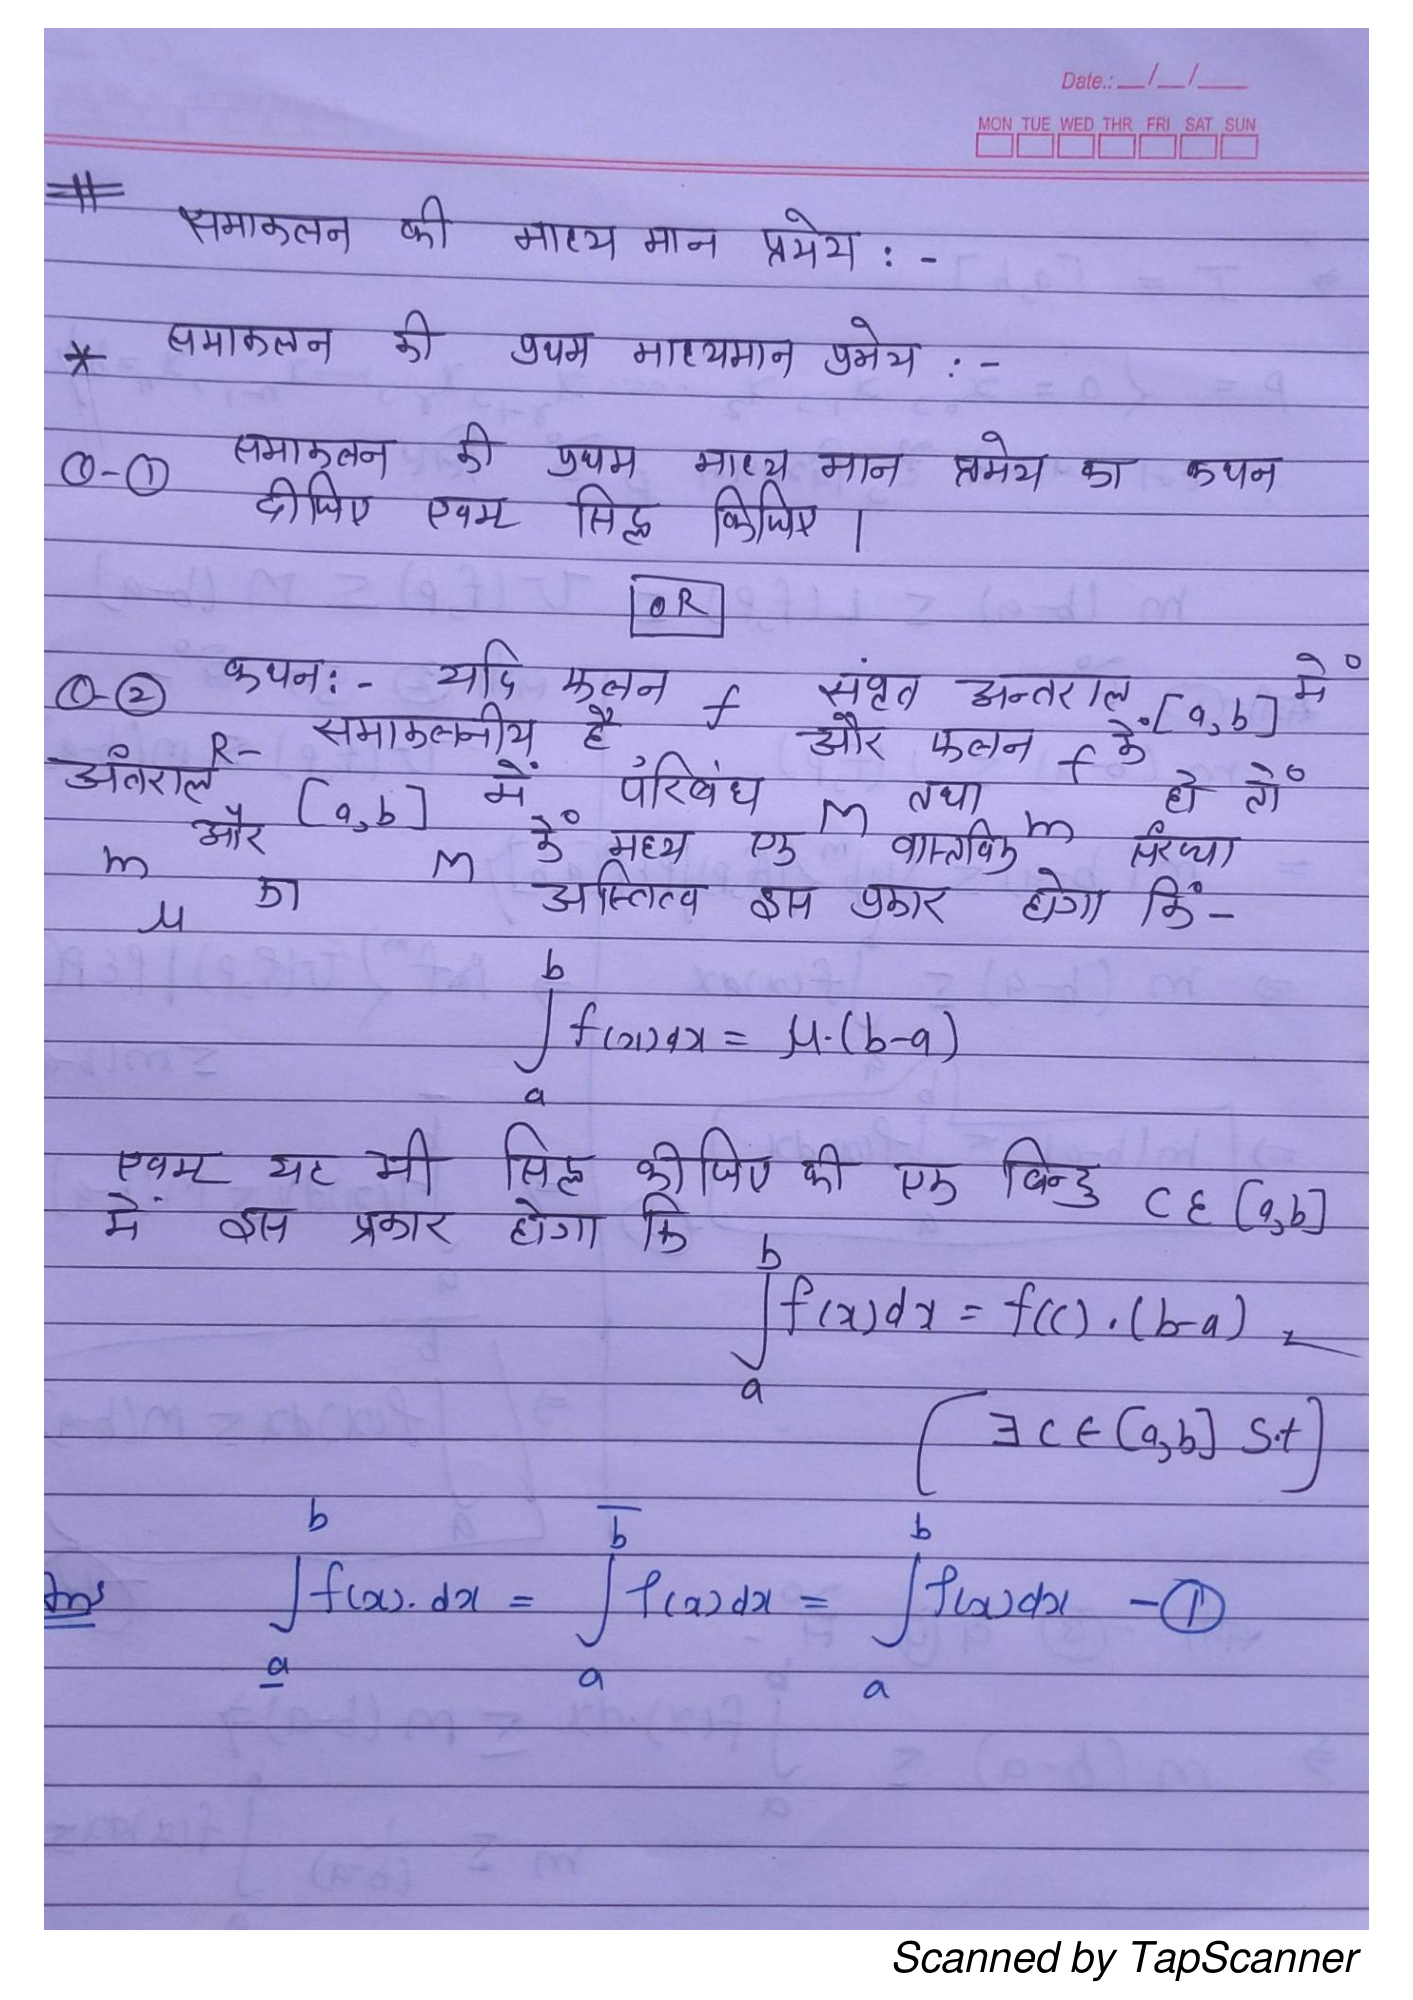 Date.: __/__/____
MON TUE WED THR FRI SAT SUN
# समाकलन की माध्य मान प्रमेय : -
* समाकलन की प्रथम माध्यमान प्रमेय : -
Q-① समाकलन की प्रथम माध्य मान प्रमेय का कथन
दीजिए एवम सिद्ध किजिए ।
OR
Q-② कथन:- यदि फलन f संवृत अन्तराल [a,b] में
R- समाकलनीय है और फलन f के
अंतराल [a,b] में परिबंध M तथा m हो तो
m और M के मध्य एक वास्तविक संख्या
μ का अस्तित्व इस प्रकार होगा कि-
∫_a^b f(x)dx = μ.(b-a)
एवम यह भी सिद्ध कीजिए की एक बिन्दु C ε [a,b]
में इस प्रकार होगा कि
∫_a^b f(x)dx = f(c).(b-a)
[∃ C ∈ [a,b] S.t]
Ans ∫_a̲^b f(x).dx = ∫_a^b̅ f(x)dx = ∫_a^b f(x)dx -①
Scanned by TapScanner